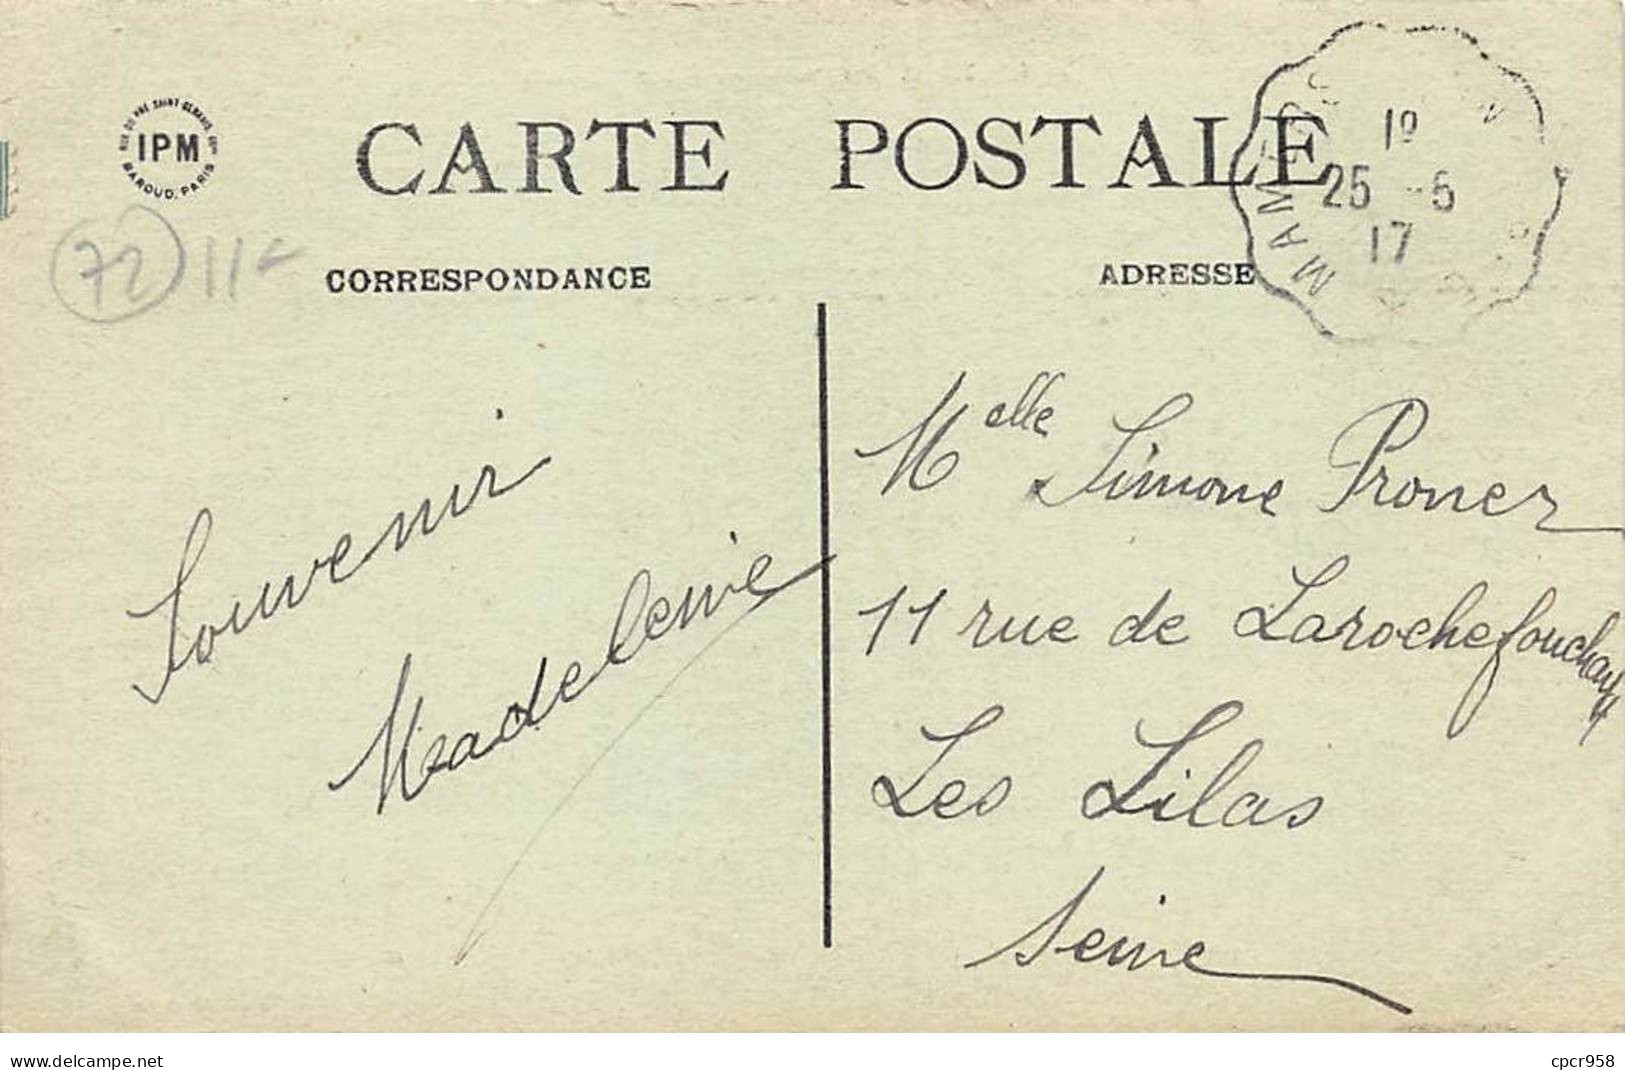 IPM
BAROUD, PARIS
CARTE POSTALE
MAMERS
1º
25 -5
17
72 11
CORRESPONDANCE
ADRESSE
Souvenir
Madeleine
Melle Simone Proner
11 rue de Larochefouchaux
Les Lilas
Seine
www.delcampe.net
cpcr958